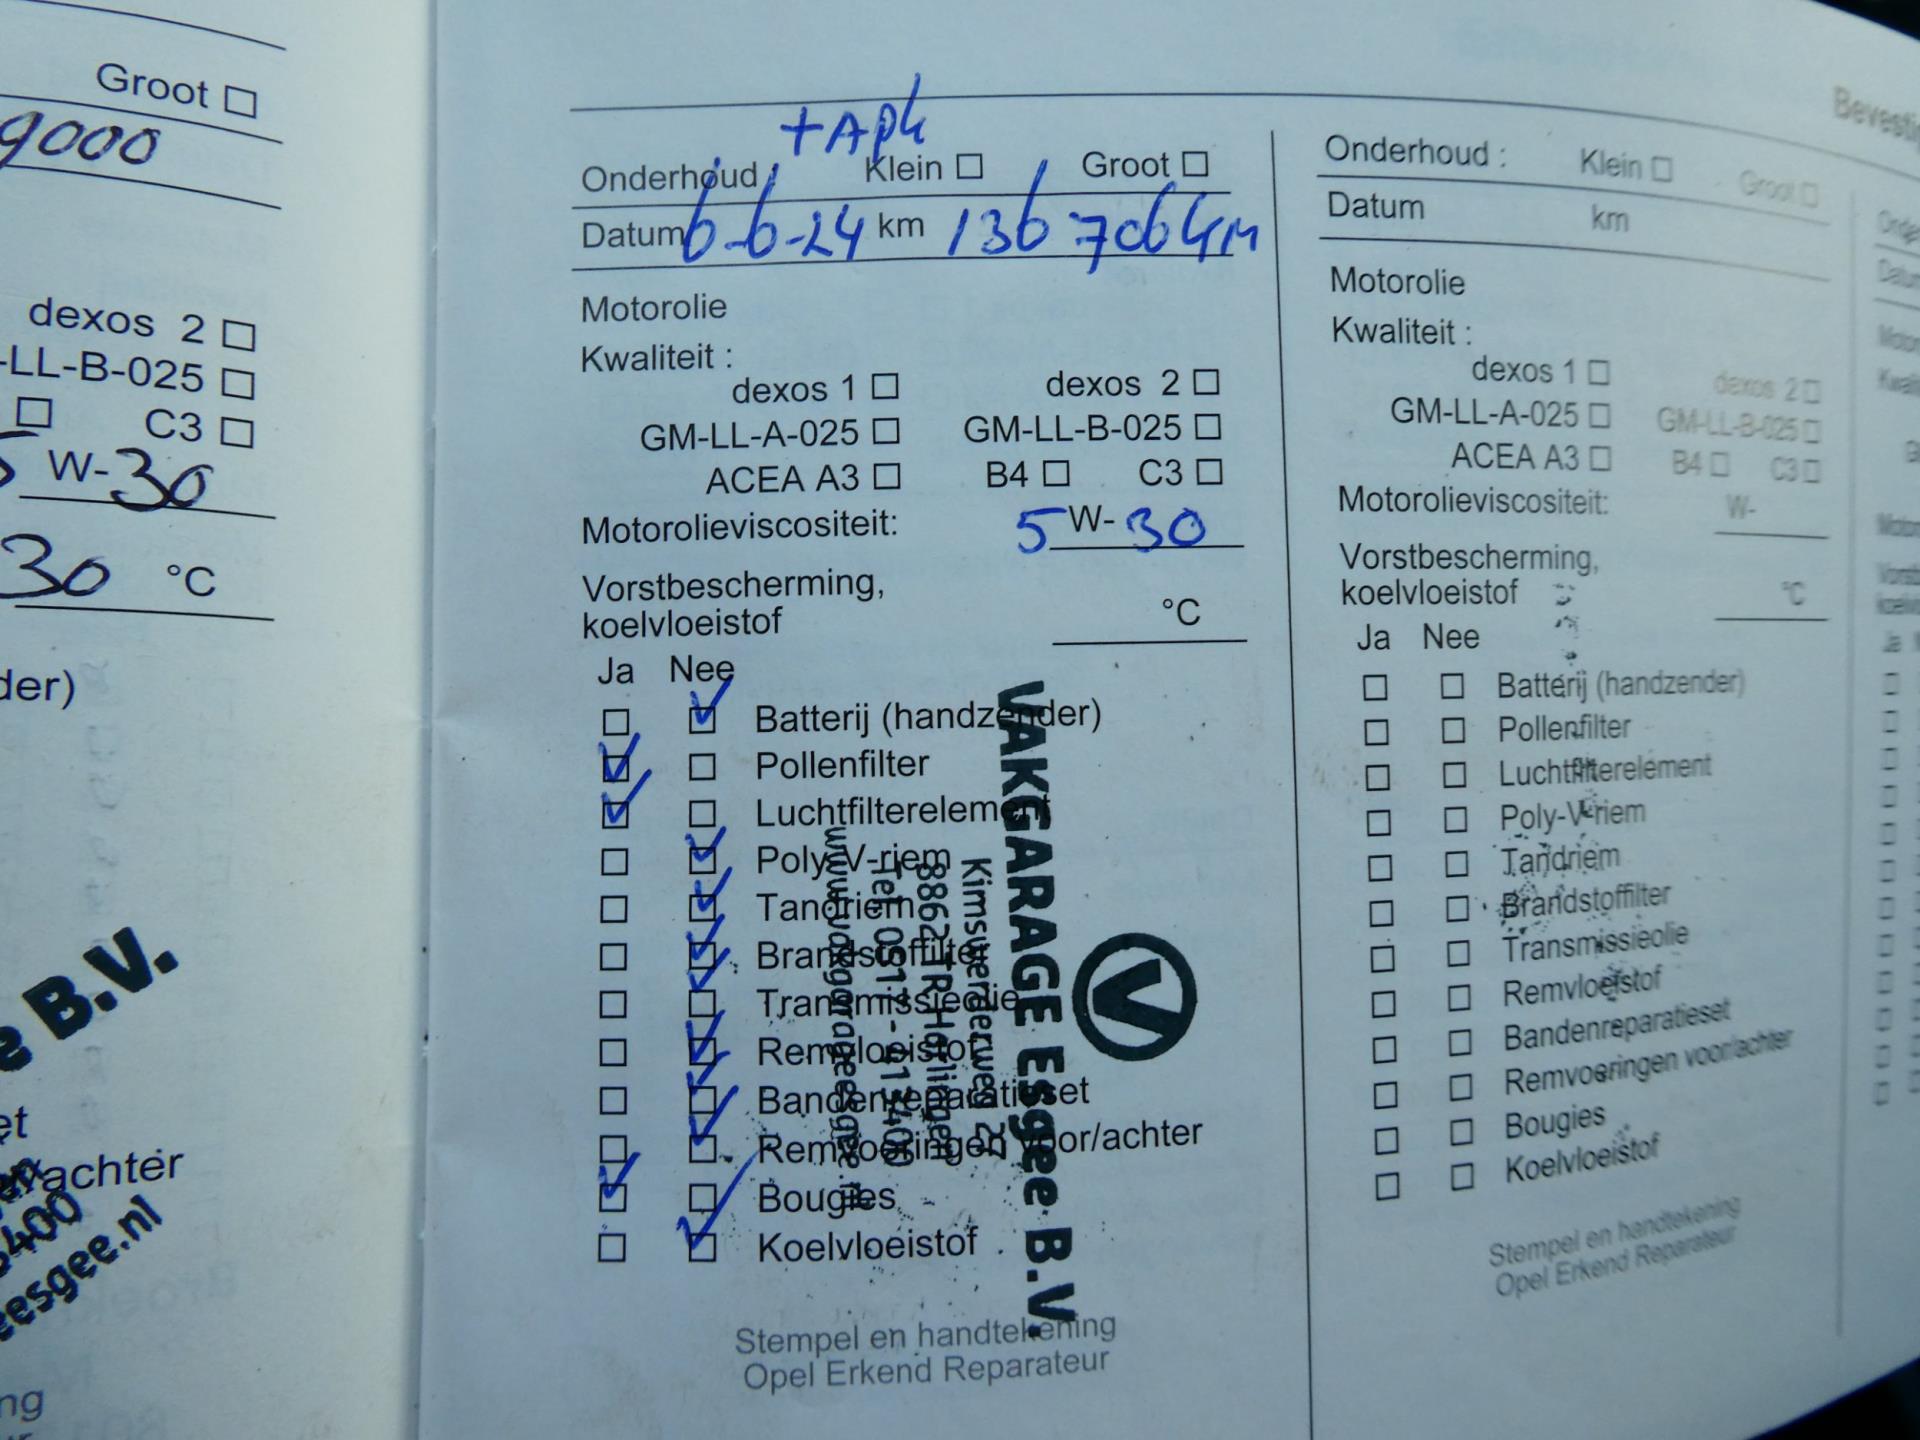 Groot
9000
dexos 2
-LL-B-025
C3
W-30
30 °C
der)
e B.V.
et
/achter
400
eesgee.nl
ng
+APK
Onderhoud Klein Groot
Datum 6-6-24 km 136706 GM
Motorolie
Kwaliteit :
dexos 1 dexos 2
GM-LL-A-025 GM-LL-B-025
ACEA A3 B4 C3
Motorolieviscositeit: 5 W- 30
Vorstbescherming,
koelvloeistof °C
Ja Nee
Batterij (handzender)
Pollenfilter
Luchtfilterelement
Poly-V-riem
Tandriem
Brandstoffilter
Transmissieolie
Remvloeistof
Bandenreparatieset
Remvoeringen voor/achter
Bougies
Koelvloeistof
Stempel en handtekening
Opel Erkend Reparateur
V
VAKGARAGE Esgee B.V.
Kimswerderweg 27
8862 TR Harlingen
Tel. 0517 - 413400
www.vakgarageesgee.nl
Bevestig
Onderhoud : Klein Groot
Datum km
Motorolie
Kwaliteit :
dexos 1 dexos 2
GM-LL-A-025 GM-LL-B-025
ACEA A3 B4 C3
Motorolieviscositeit: W-
Vorstbescherming,
koelvloeistof °C
Ja Nee
Batterij (handzender)
Pollenfilter
Luchtfilterelement
Poly-V-riem
Tandriem
Brandstoffilter
Transmissieolie
Remvloeistof
Bandenreparatieset
Remvoeringen voor/achter
Bougies
Koelvloeistof
Stempel en handtekening
Opel Erkend Reparateur